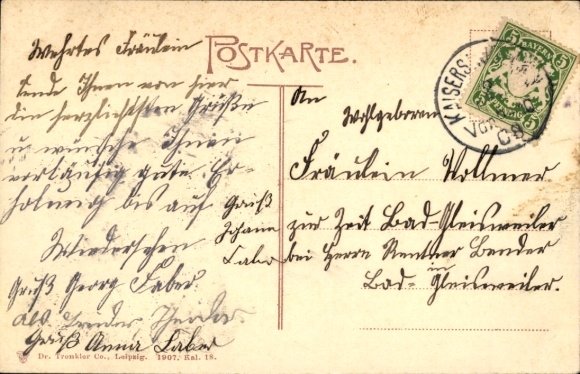 POSTKARTE.
Wehrtes Fräulein
sende Ihnen von hier
die herzlichsten Grüße
u wünsche Ihnen
vorläufig gute Er-
holung bis auf
Wiedersehen
Gruß Georg Faber.
Gruß Anna Faber
Gruß
Faber
An
Wohlgeboren
Fräulein Vollmer
zur Zeit Bad Gleisweiler
bei Herrn Rentner Bender
in
Bad-Gleisweiler.
KAISERS
5 BAYERN 5
5 PFENNIG 5
Dr. Trenkler Co., Leipzig. 1907. Kal. 18.